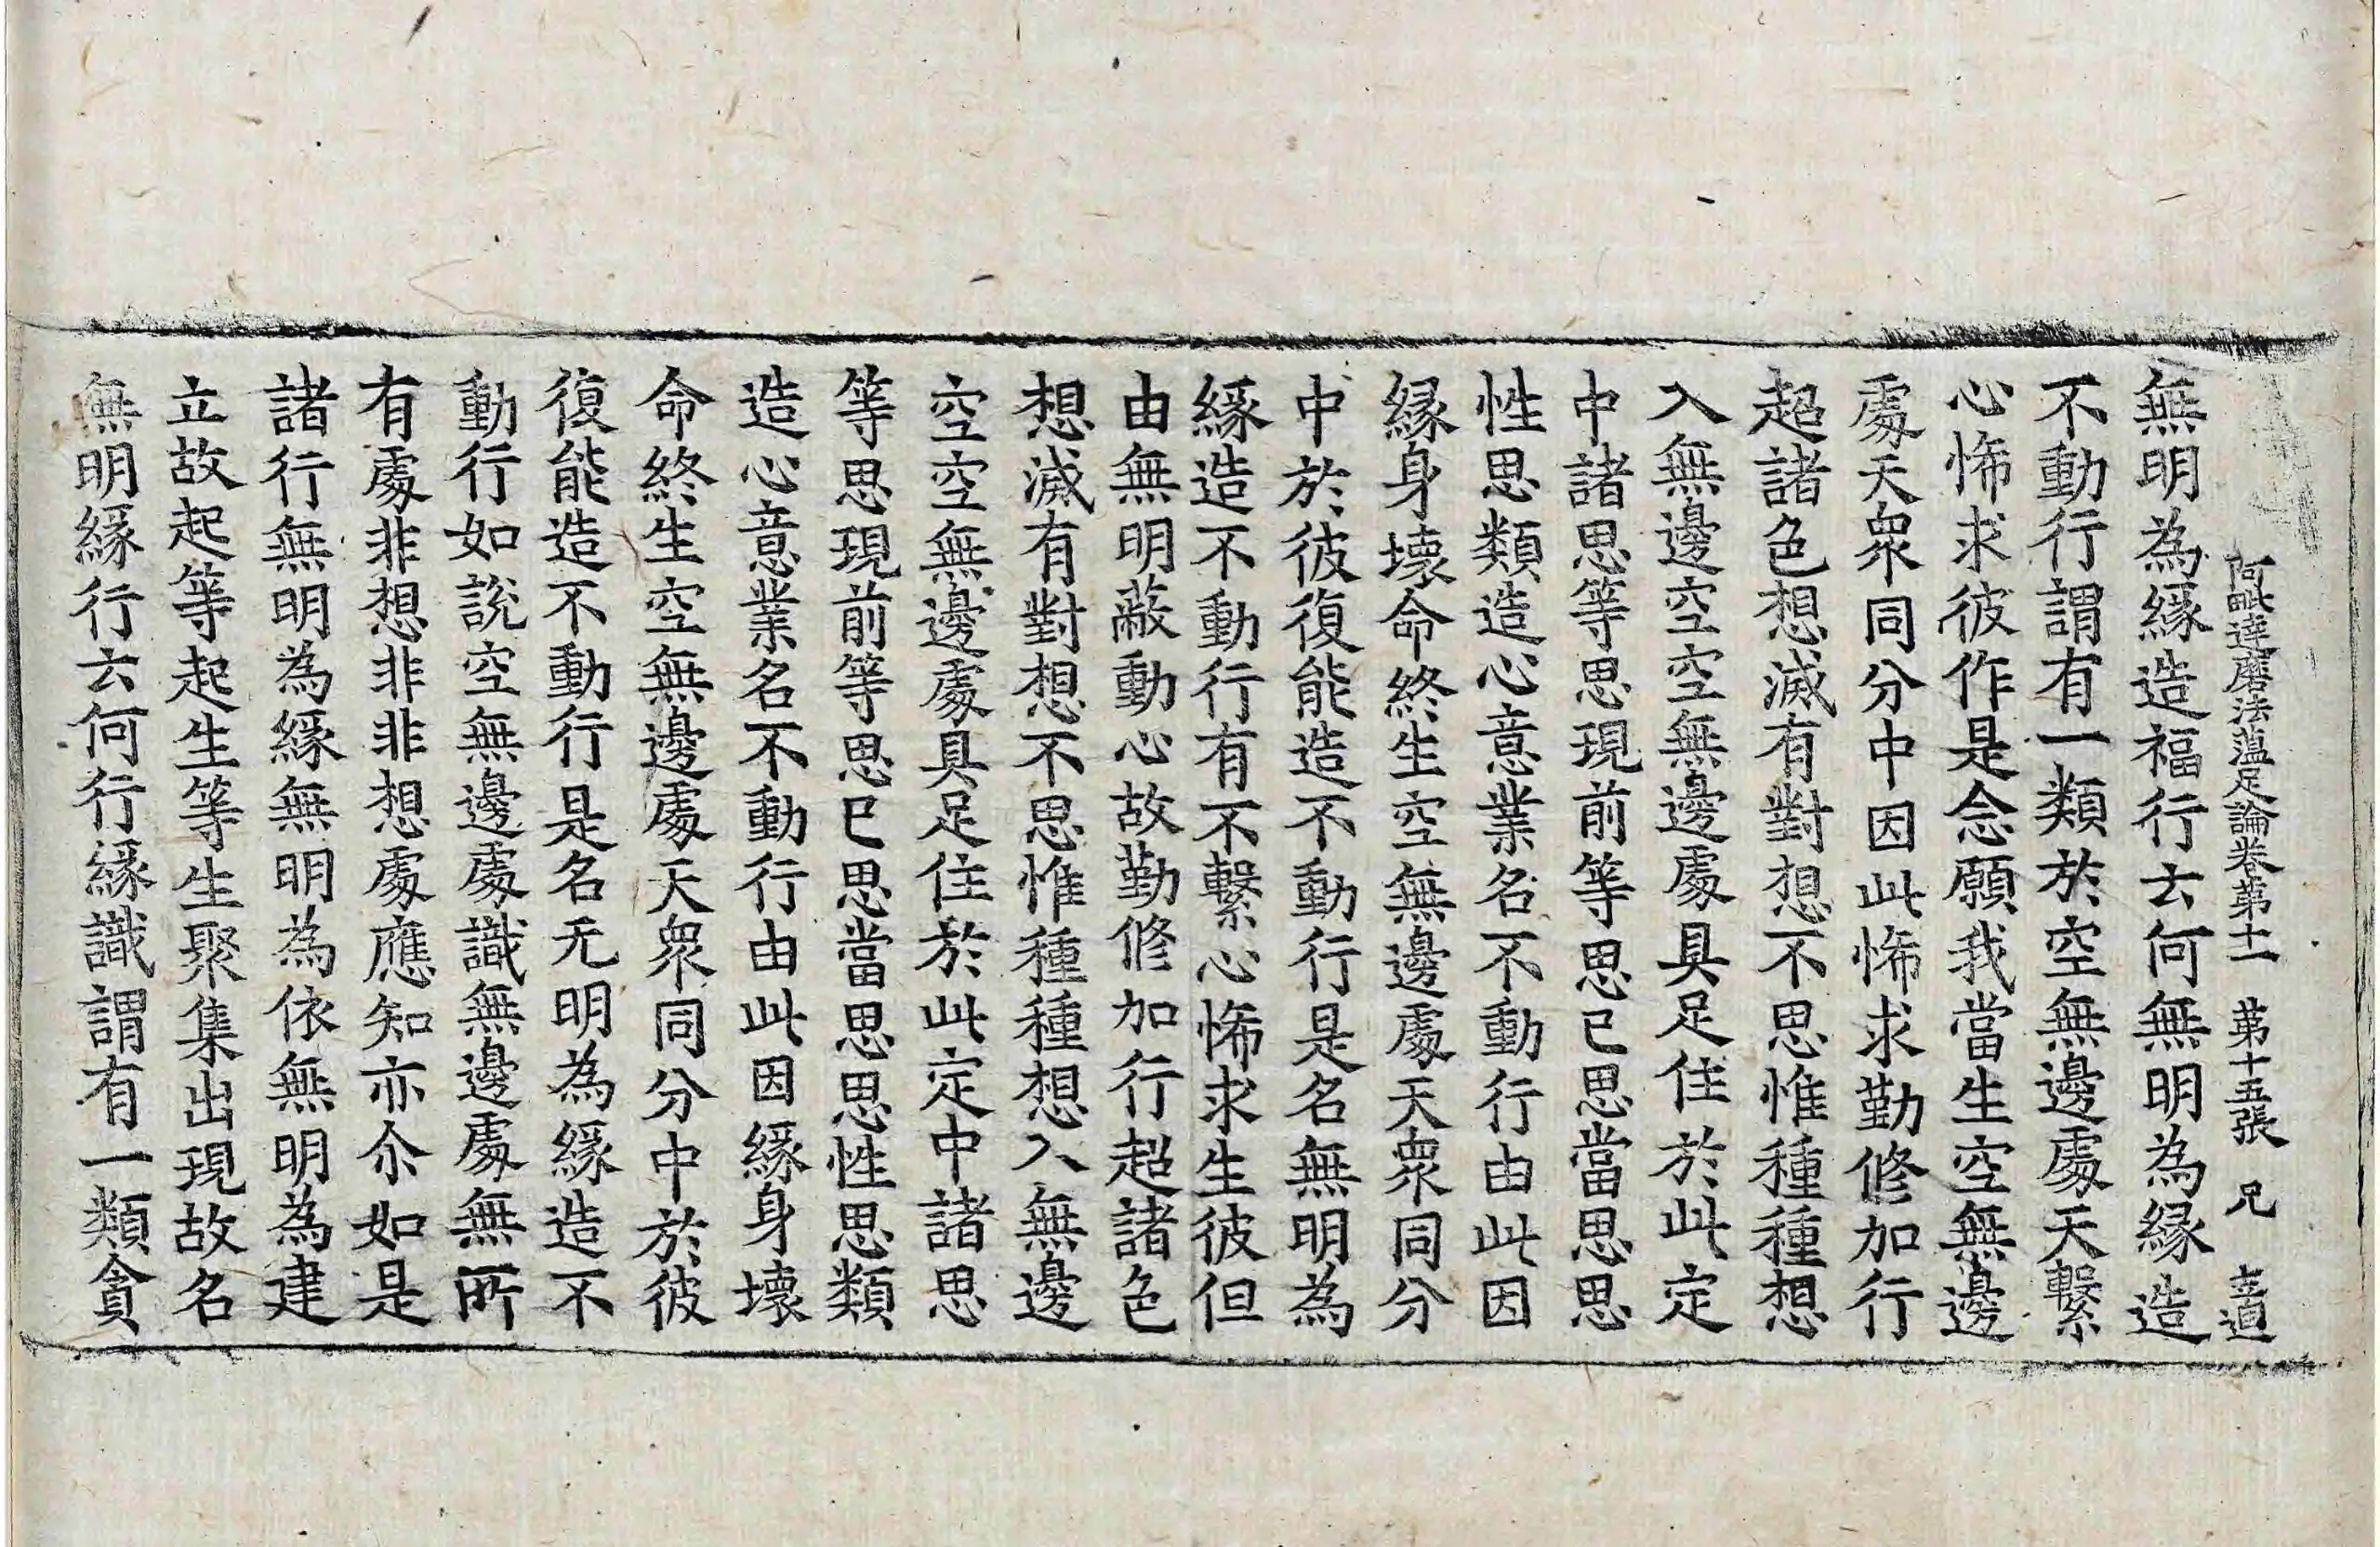 阿毗達磨法蘊足論卷第十一　第十五張　兄　志道
無明為緣造福行去何無明為緣造
不動行謂有一類於空無邊處天繫
心悕求彼作是念願我當生空無邊
處天眾同分中因此悕求勤修加行
超諸色想滅有對想不思惟種種想
入無邊空空無邊處具足住於此定
中諸思等思現前等思已思當思思
性思類造心意業名不動行由此因
緣身壞命終生空無邊處天眾同分
中於彼復能造不動行是名無明為
緣造不動行有不繫心悕求生彼但
由無明蔽動心故勤修加行超諸色
想滅有對想不思惟種種想入無邊
空空無邊處具足住於此定中諸思
等思現前等思已思當思思性思類
造心意業名不動行由此因緣身壞
命終生空無邊處天眾同分中於彼
復能造不動行是名无明為緣造不
動行如說空無邊處識無邊處無所
有處非想非非想處應知亦尒如是
諸行無明為緣無明為依無明為建
立故起等起生等生聚集出現故名
無明緣行云何行緣識謂有一類貪